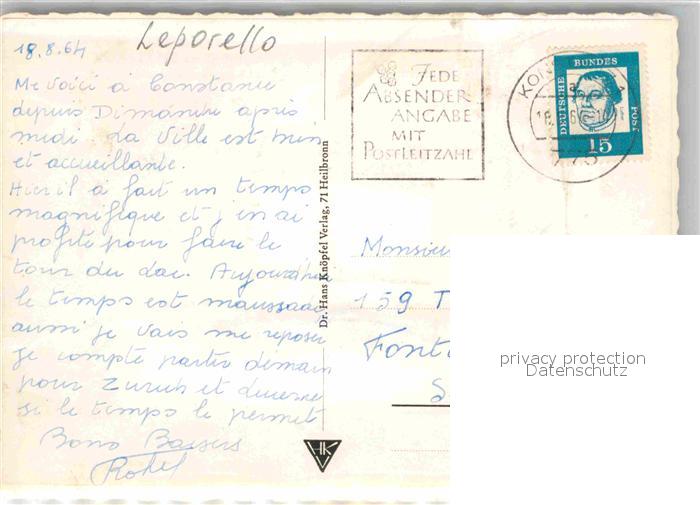 Leporello
18.8.64
Me voici à Constance
depuis Dimanche après
midi. La Ville est bien
et accueillante.
Hier il à fait un temps
magnifique et j'en ai
profité pour faire le
tour du lac. Aujourd'hui
le temps est maussade
aussi je vais me reposer
je compte partir demain
pour Zurich et Lucerne
si le temps le permet
Bons Baisers
JEDE
ABSENDER
ANGABE
MIT
POSTLEITZAHL
KON
775
DEUTSCHE BUNDES POST
15
Dr. Hans Knöpfel Verlag, 71 Heilbronn
HK
V
Monsieur
159 T
Font
S
privacy protection
Datenschutz